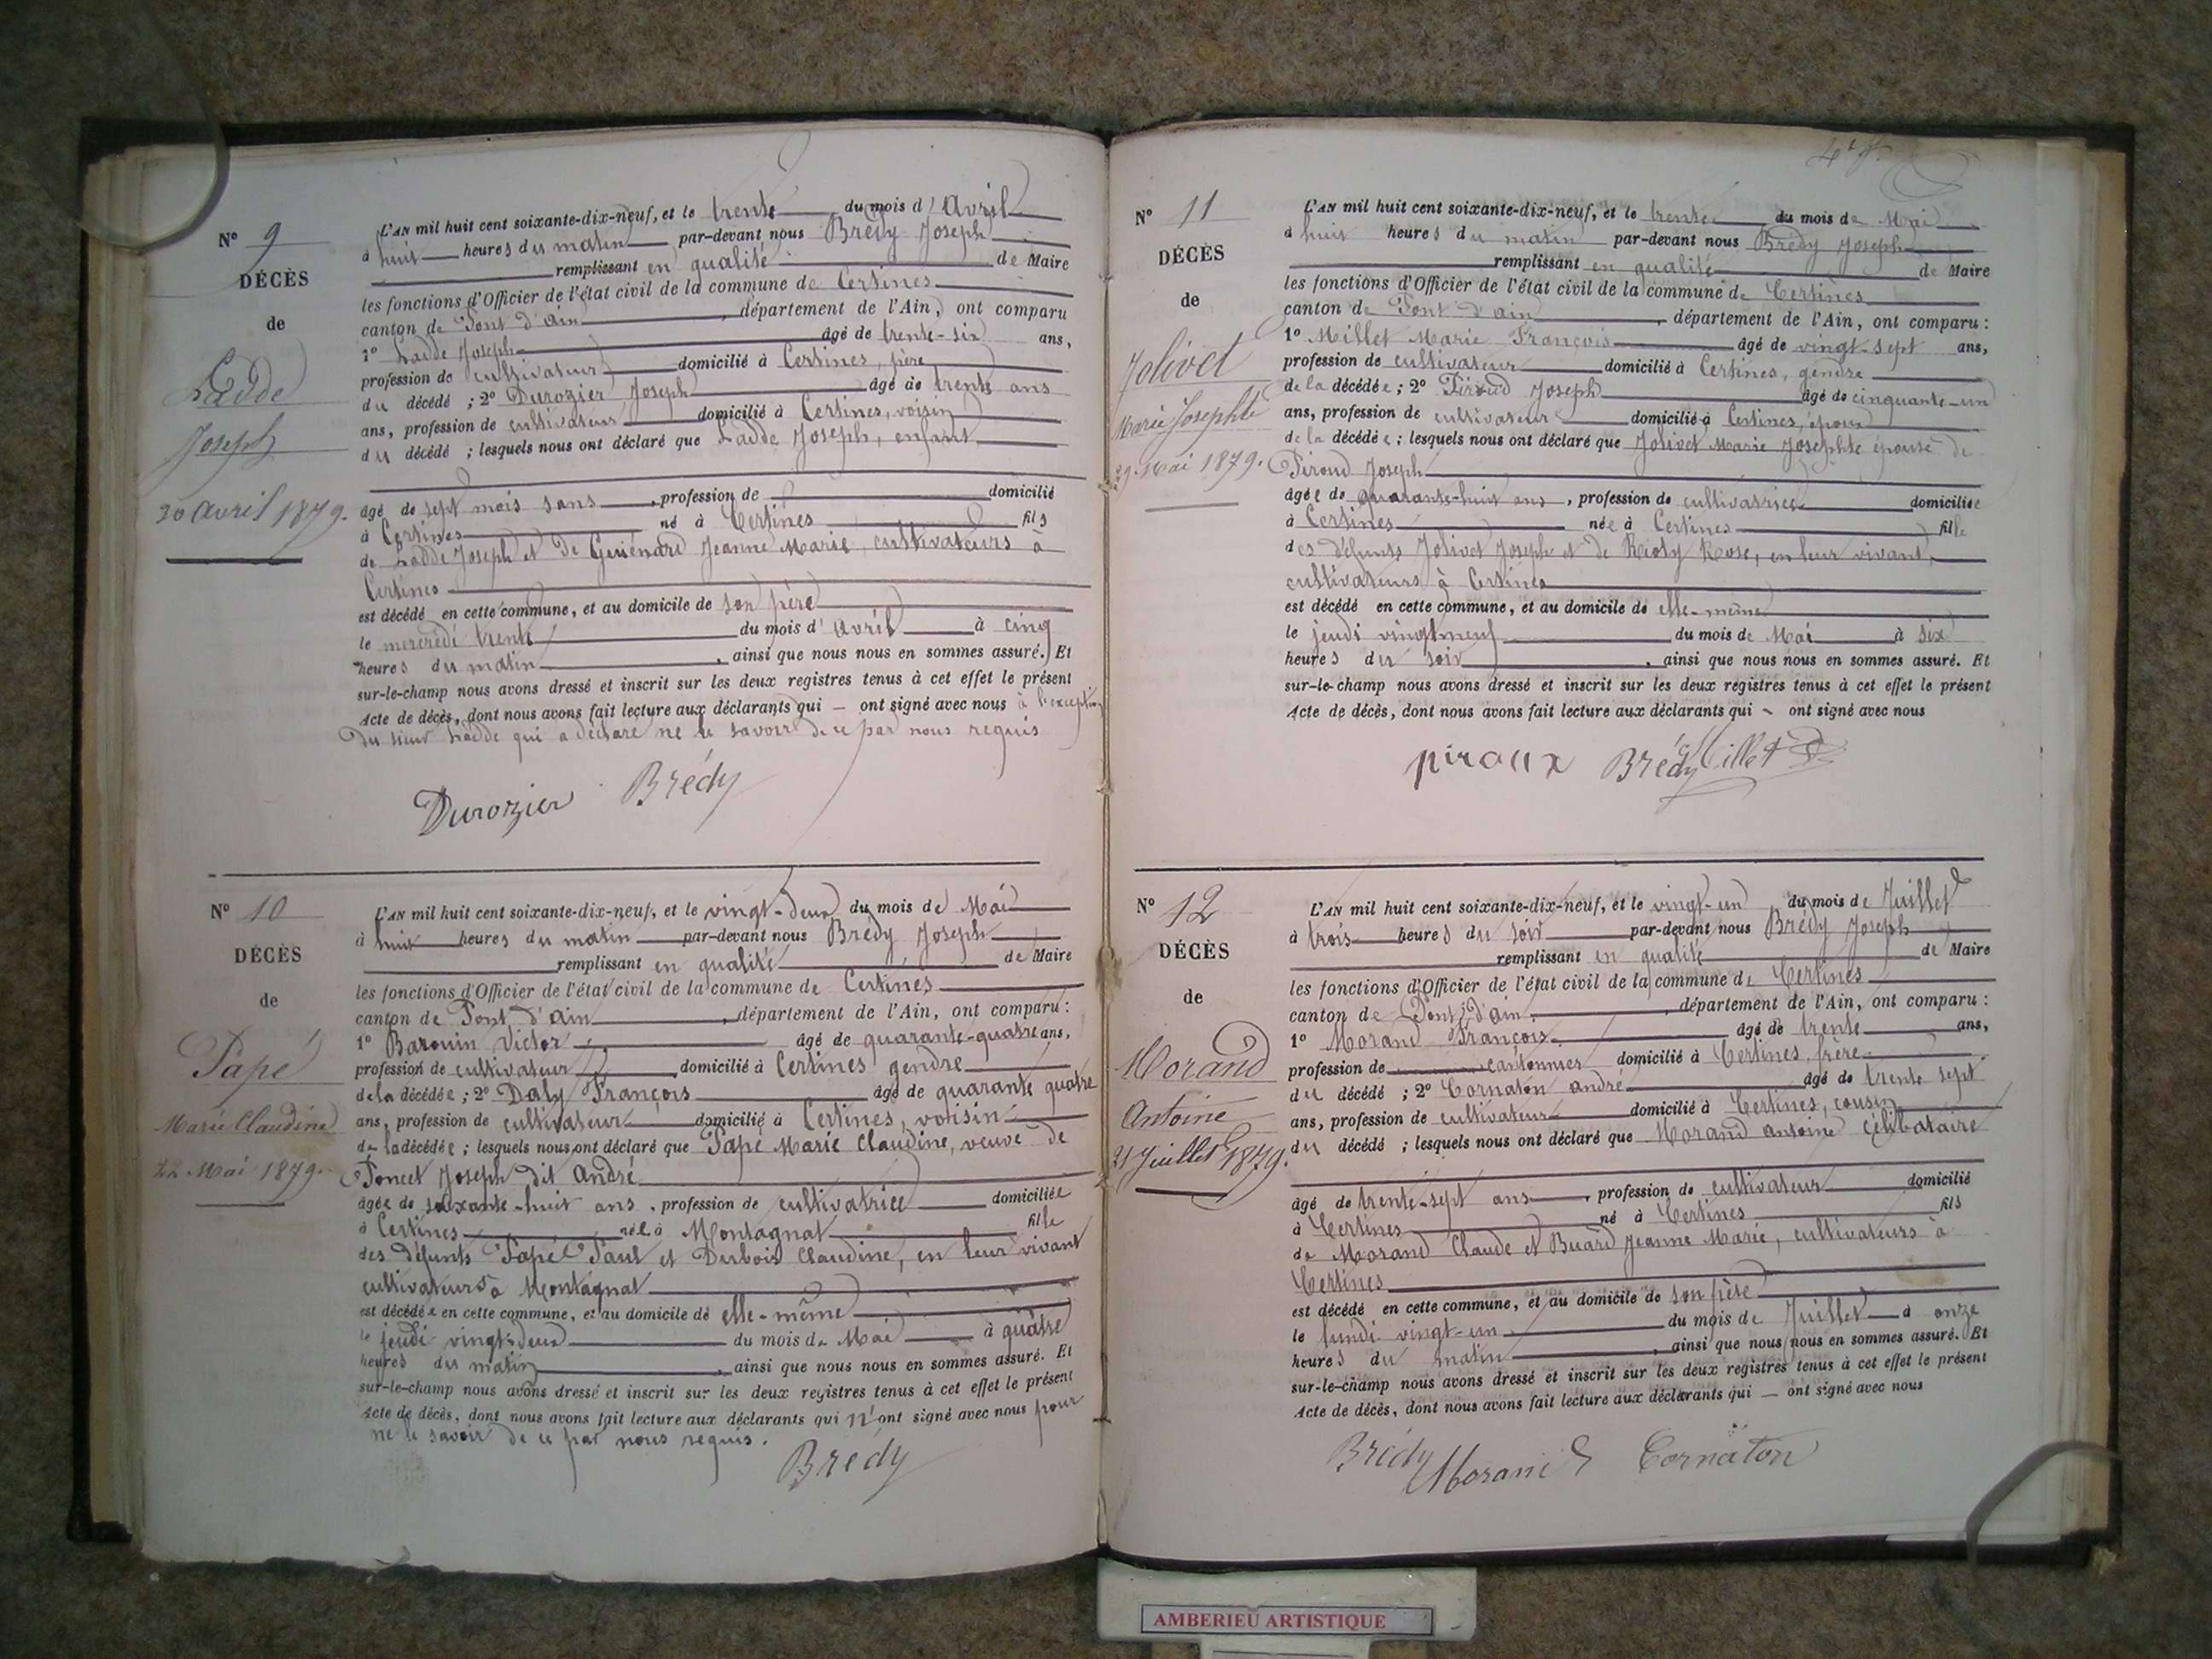 N° 9
DÉCÈS
de
Ladde
Joseph
30 Avril 1879.
L'AN mil huit cent soixante-dix-neuf, et le trente du mois d'Avril
à huit heures du matin par-devant nous Brédy Joseph
remplissant en qualité de Maire
les fonctions d'Officier de l'état civil de la commune de Certines
canton de Pont d'Ain, département de l'Ain, ont comparu
1° Ladde Joseph âgé de trente-six ans,
profession de cultivateur domicilié à Certines, père
du décédé ; 2° Durozier Joseph âgé de trente ans
ans, profession de cultivateur domicilié à Certines, voisin
du décédé ; lesquels nous ont déclaré que Ladde Joseph, enfant
âgé de sept mois sans, profession de domicilié
à Certines né à Certines fils
de Ladde Joseph et de Guiénard Jeanne Marie, cultivateurs à
Certines
est décédé en cette commune, et au domicile de son père
le mercredi trente du mois d'avril à cinq
heures du matin, ainsi que nous nous en sommes assuré. Et
sur-le-champ nous avons dressé et inscrit sur les deux registres tenus à cet effet le présent
Acte de décès, dont nous avons fait lecture aux déclarants qui — ont signé avec nous à l'exception
du sieur Ladde qui a déclaré ne le savoir de ce par nous requis
Durozier Brédy
N° 10
DÉCÈS
de
Papé
Marie Claudine
22 Mai 1879.
L'AN mil huit cent soixante-dix-neuf, et le vingt-deux du mois de Mai
à huit heures du matin par-devant nous Brédy Joseph
remplissant en qualité de Maire
les fonctions d'Officier de l'état civil de la commune de Certines
canton de Pont d'Ain, département de l'Ain, ont comparu :
1° Barouin Victor âgé de quarante-quatre ans,
profession de cultivateur, domicilié à Certines gendre
de la décédée ; 2° Daly François âgé de quarante quatre
ans, profession de cultivateur domicilié à Certines, voisin
de la décédée ; lesquels nous ont déclaré que Papé Marie Claudine, veuve de
Poncet Joseph dit André
âgée de soixante-huit ans, profession de cultivatrice domiciliée
à Certines née à Montagnat fille
des défunts Papé Paul et Dubois Claudine, en leur vivant
cultivateurs à Montagnat
est décédée en cette commune, et au domicile de elle-même
le jeudi vingt-deux du mois de Mai à quatre
heures du matin, ainsi que nous nous en sommes assuré. Et
sur-le-champ nous avons dressé et inscrit sur les deux registres tenus à cet effet le présent
Acte de décès, dont nous avons fait lecture aux déclarants qui n'ont signé avec nous pour
ne le savoir de ce par nous requis.
Brédy
N° 11
DÉCÈS
de
Jolivet
Marie Josephte
29 Mai 1879.
L'AN mil huit cent soixante-dix-neuf, et le trente du mois de Mai
à huit heures du matin par-devant nous Brédy Joseph
remplissant en qualité de Maire
les fonctions d'Officier de l'état civil de la commune de Certines
canton de Pont d'ain, département de l'Ain, ont comparu :
1° Millet Marie François âgé de vingt-sept ans,
profession de cultivateur domicilié à Certines, gendre
de la décédée ; 2° Piroud Joseph âgé de cinquante-un
ans, profession de cultivateur domicilié à Certines, époux
de la décédée ; lesquels nous ont déclaré que Jolivet Marie Josephte épouse de
Piroud Joseph
âgée de quarante-huit ans, profession de cultivatrice domiciliée
à Certines née à Certines fille
des défunts Jolivet Joseph et de Rioty Rose, en leur vivant,
cultivateurs à Certines
est décédé en cette commune, et au domicile de elle-même
le jeudi vingt neuf du mois de Mai à six
heures du soir, ainsi que nous nous en sommes assuré. Et
sur-le-champ nous avons dressé et inscrit sur les deux registres tenus à cet effet le présent
Acte de décès, dont nous avons fait lecture aux déclarants qui - ont signé avec nous
piroux Brédy Millet
N° 12
DÉCÈS
de
Morand
Antoine
21 Juillet 1879.
L'AN mil huit cent soixante-dix-neuf, et le vingt-un du mois de Juillet
à trois heures du soir par-devant nous Brédy Joseph
remplissant en qualité de Maire
les fonctions d'Officier de l'état civil de la commune de Certines
canton de Pont d'ain, département de l'Ain, ont comparu :
1° Morand François âgé de trente ans,
profession de cantonnier domicilié à Certines frère
du décédé ; 2° Cornaton André âgé de trente sept
ans, profession de cultivateur domicilié à Certines, cousin
du décédé ; lesquels nous ont déclaré que Morand Antoine célibataire
âgé de trente-sept ans, profession de cultivateur domicilié
à Certines né à Certines fils
de Morand Claude et Buard Jeanne Marie, cultivateurs à
Certines
est décédé en cette commune, et au domicile de son père
le lundi vingt-un du mois de Juillet à onze
heures du matin, ainsi que nous nous en sommes assuré. Et
sur-le-champ nous avons dressé et inscrit sur les deux registres tenus à cet effet le présent
Acte de décès, dont nous avons fait lecture aux déclarants qui — ont signé avec nous
Brédy Morand Cornaton
AMBERIEU ARTISTIQUE